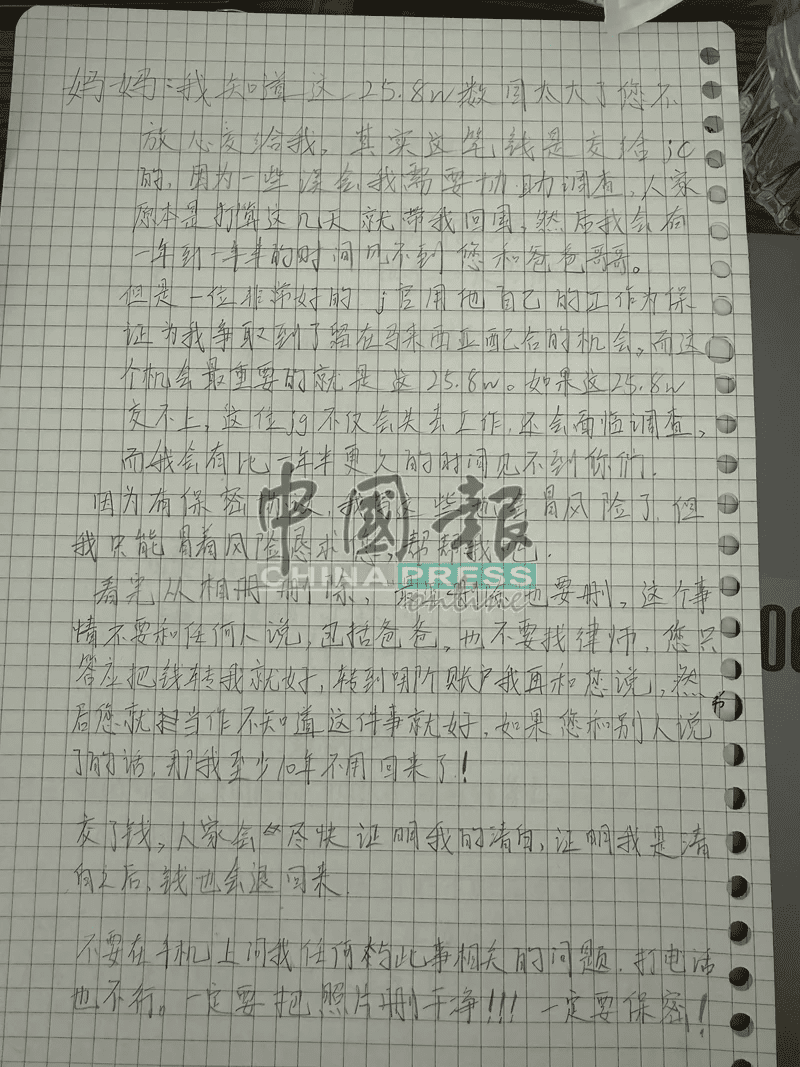 妈妈：我知道这25.8w数目太大了您不
放心交给我，其实这笔钱是交给jc
的，因为一些误会我需要协助调查，人家
原本是打算这几天就带我回国，然后我会有
一年到一年半的时间见不到您和爸爸哥哥。
但是一位非常好的j官用他自己的工作为保
证为我争取到了留在马来西亚配合的机会，而这
个机会最重要的就是这25.8w。如果这25.8w
交不上，这位jg不仅会失去工作，还会面临调查，
而我会有比一年半更久的时间见不到你们．
因为有保密协议，我 这些 冒风险了，但
我只能冒着风险恳求您，帮帮我吧．
中國報
CHINA PRESS
online
看完从相册删除， 也要删，这个事
情不要和任何人说，包括爸爸，也不要找律师，您只
答应把钱转我就好，转到哪个账户我再和您说，然
后您就当作不知道这件事就好，如果您和别人说
了的话，那我至少10年不用回来了！
交了钱，人家会尽快证明我的清白，证明我是清
白之后，钱也会退回来．
不要在手机上问我任何与此事相关的问题，打电话
也不行。一定要把照片删干净！！！一定要保密！